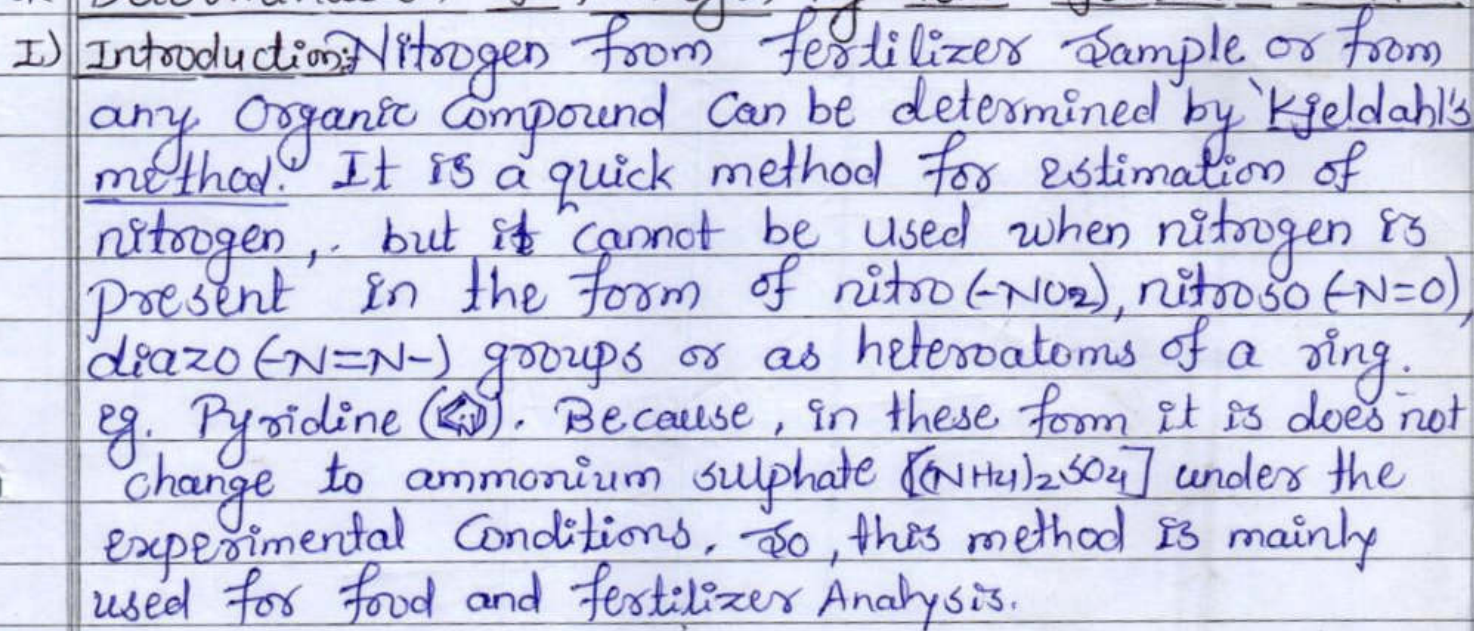 I) Introduction:- Nitrogen from fertilizer sample or from
any Organic Compound Can be determined by 'Kjeldahl's
method.' It is a quick method for estimation of
nitrogen, but it cannot be used when nitrogen is
present in the form of nitro (-NO2), nitroso (-N=O),
diazo (-N=N-) groups or as heteroatoms of a ring.
eg. Pyridine ( ). Because, in these form it is does not
change to ammonium sulphate [(NH4)2SO4] under the
experimental Conditions. So, this method is mainly
used for food and fertilizer Analysis.